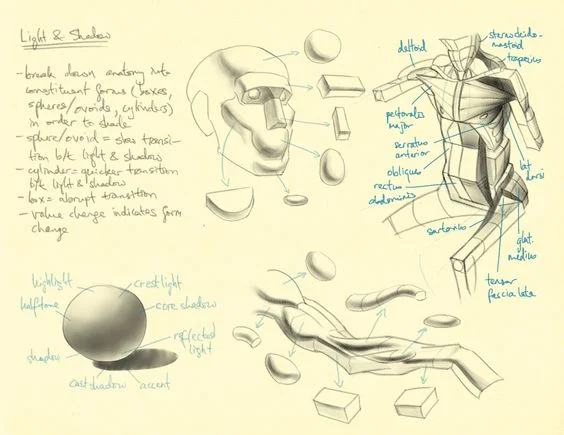 Light & Shadow
- break down anatomy into
constituent forms (boxes,
spheres/ovoids, cylinders)
in order to shade
- sphere/ovoid = slow transi-
tion b/t light & shadow
- cylinder = quicker transition
b/t light & shadow
- box = abrupt transition
- value change indicates form
change
deltoid
sternocleido-
mastoid
trapezius
pectoralis
major
serratus
anterior
oblique
rectus
abdominis
sartorius
lat.
dorsi
glut.
medius
tensor
fascia lata
highlight
crest light
halftone
core shadow
reflected
light
shadow
cast shadow
accent